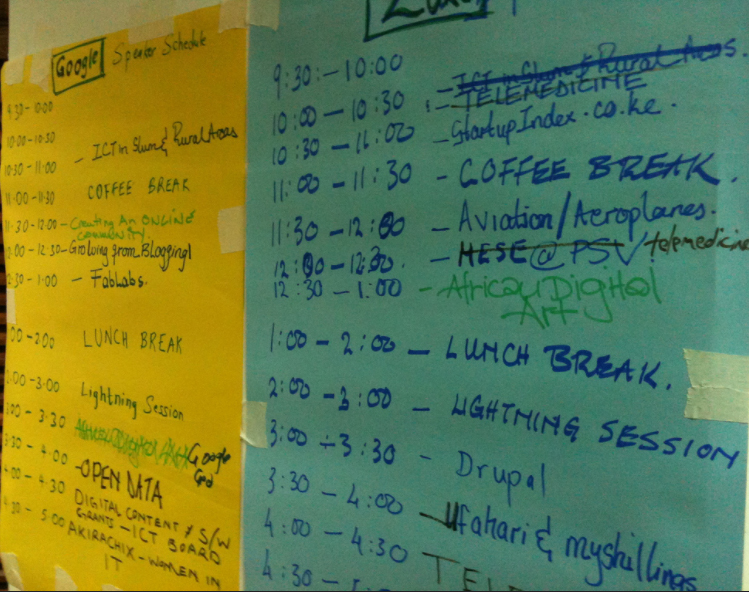 Google Speaker Schedule
9:30-10:00
10:00-10:30
- ICT in Slum & Rural Areas
10:30-11:00
COFFEE BREAK
11:00-11:30
11:30-12:00 - Creating An ONLINE
COMMUNITY.
12:00-12:30 - Growing from Blogging!
12:30-1:00 - FabLabs.
1:00-2:00 LUNCH BREAK
2:00-3:00 Lightning Session
3:00-3:30 African Digital Art Google
God
3:30-4:00 - OPEN DATA
4:00-4:30 DIGITAL CONTENT & S/W
GRANTS - ICT BOARD
4:30-5:00 AKIRACHIX - WOMEN IN
IT
9:30:-10:00 - ICT in Slum & Rural Areas.
10:00-10:30 - TELEMEDICINE
10:30-11:00 - StartupIndex.co.ke.
11:00-11:30 - COFFEE BREAK.
11:30-12:00 - Aviation/Aeroplanes.
12:00-12:30 - HESE@PSV/telemedicine
12:30-1:00 - African Digital
Art
1:00-2:00 - LUNCH BREAK.
2:00-3:00 - LIGHTNING SESSION
3:00-3:30 - Drupal
3:30-4:00 - Ufahari & myshillings
4:00-4:30
4:30-